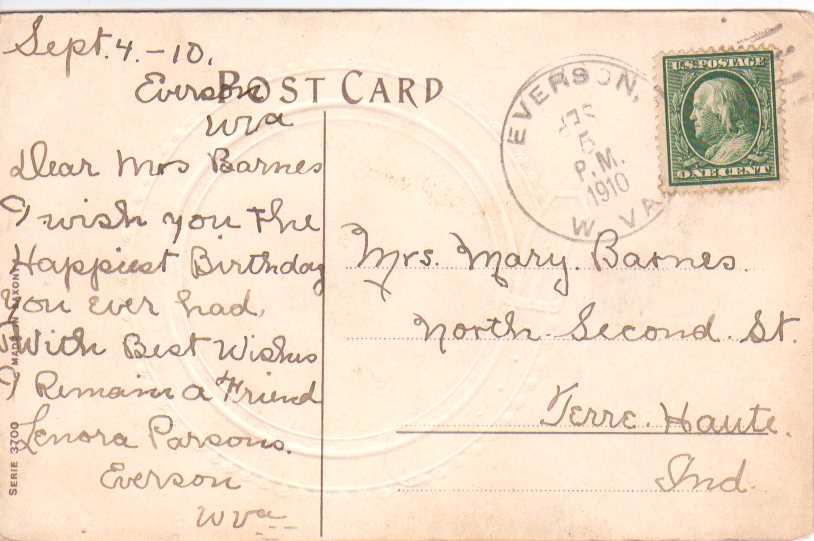 Sept. 4. - 10.
Everson
W Va
POST CARD
Dear Mrs Barnes
I wish you the
Happiest Birthday
You ever had,
With Best Wishes
I Remain a Friend
Lenora Parsons.
Everson
W Va
SERIE 3700
EVERSON,
5
P.M.
1910
W. VA.
U.S. POSTAGE
ONE CENT
Mrs. Mary. Barnes
North. Second. St.
Terre. Haute.
Ind.